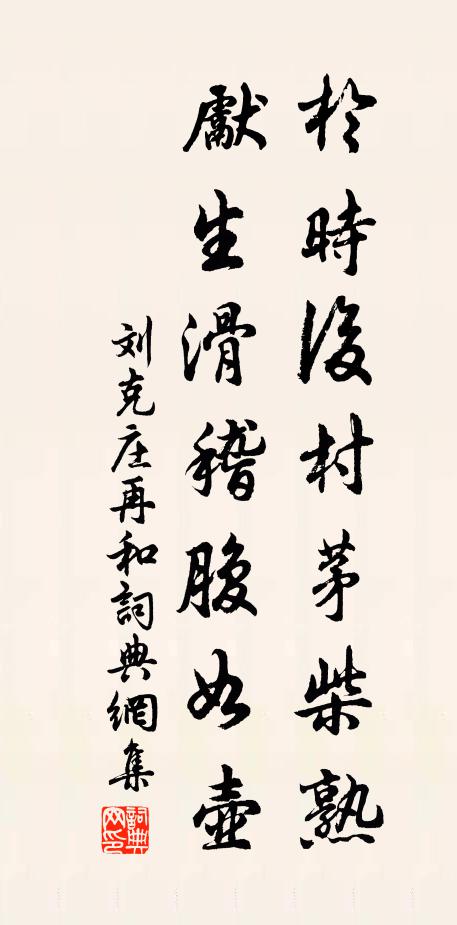 於時後村茅柴熟
獻生滑稽腹如壺
刘克庄再和詞典網集
詞典
网印